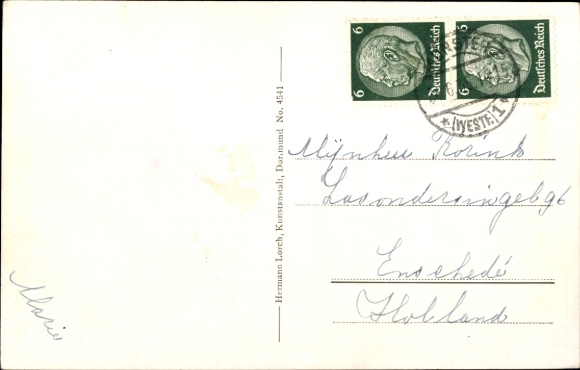 6
Deutsches Reich
6
Deutsches Reich
(WESTF.) 1
Mijnheer Korink
Lasondersingel 96
Enschedé
Holland
Marie
Herrmann Lorch, Kunstanstalt, Dortmund No. 4541